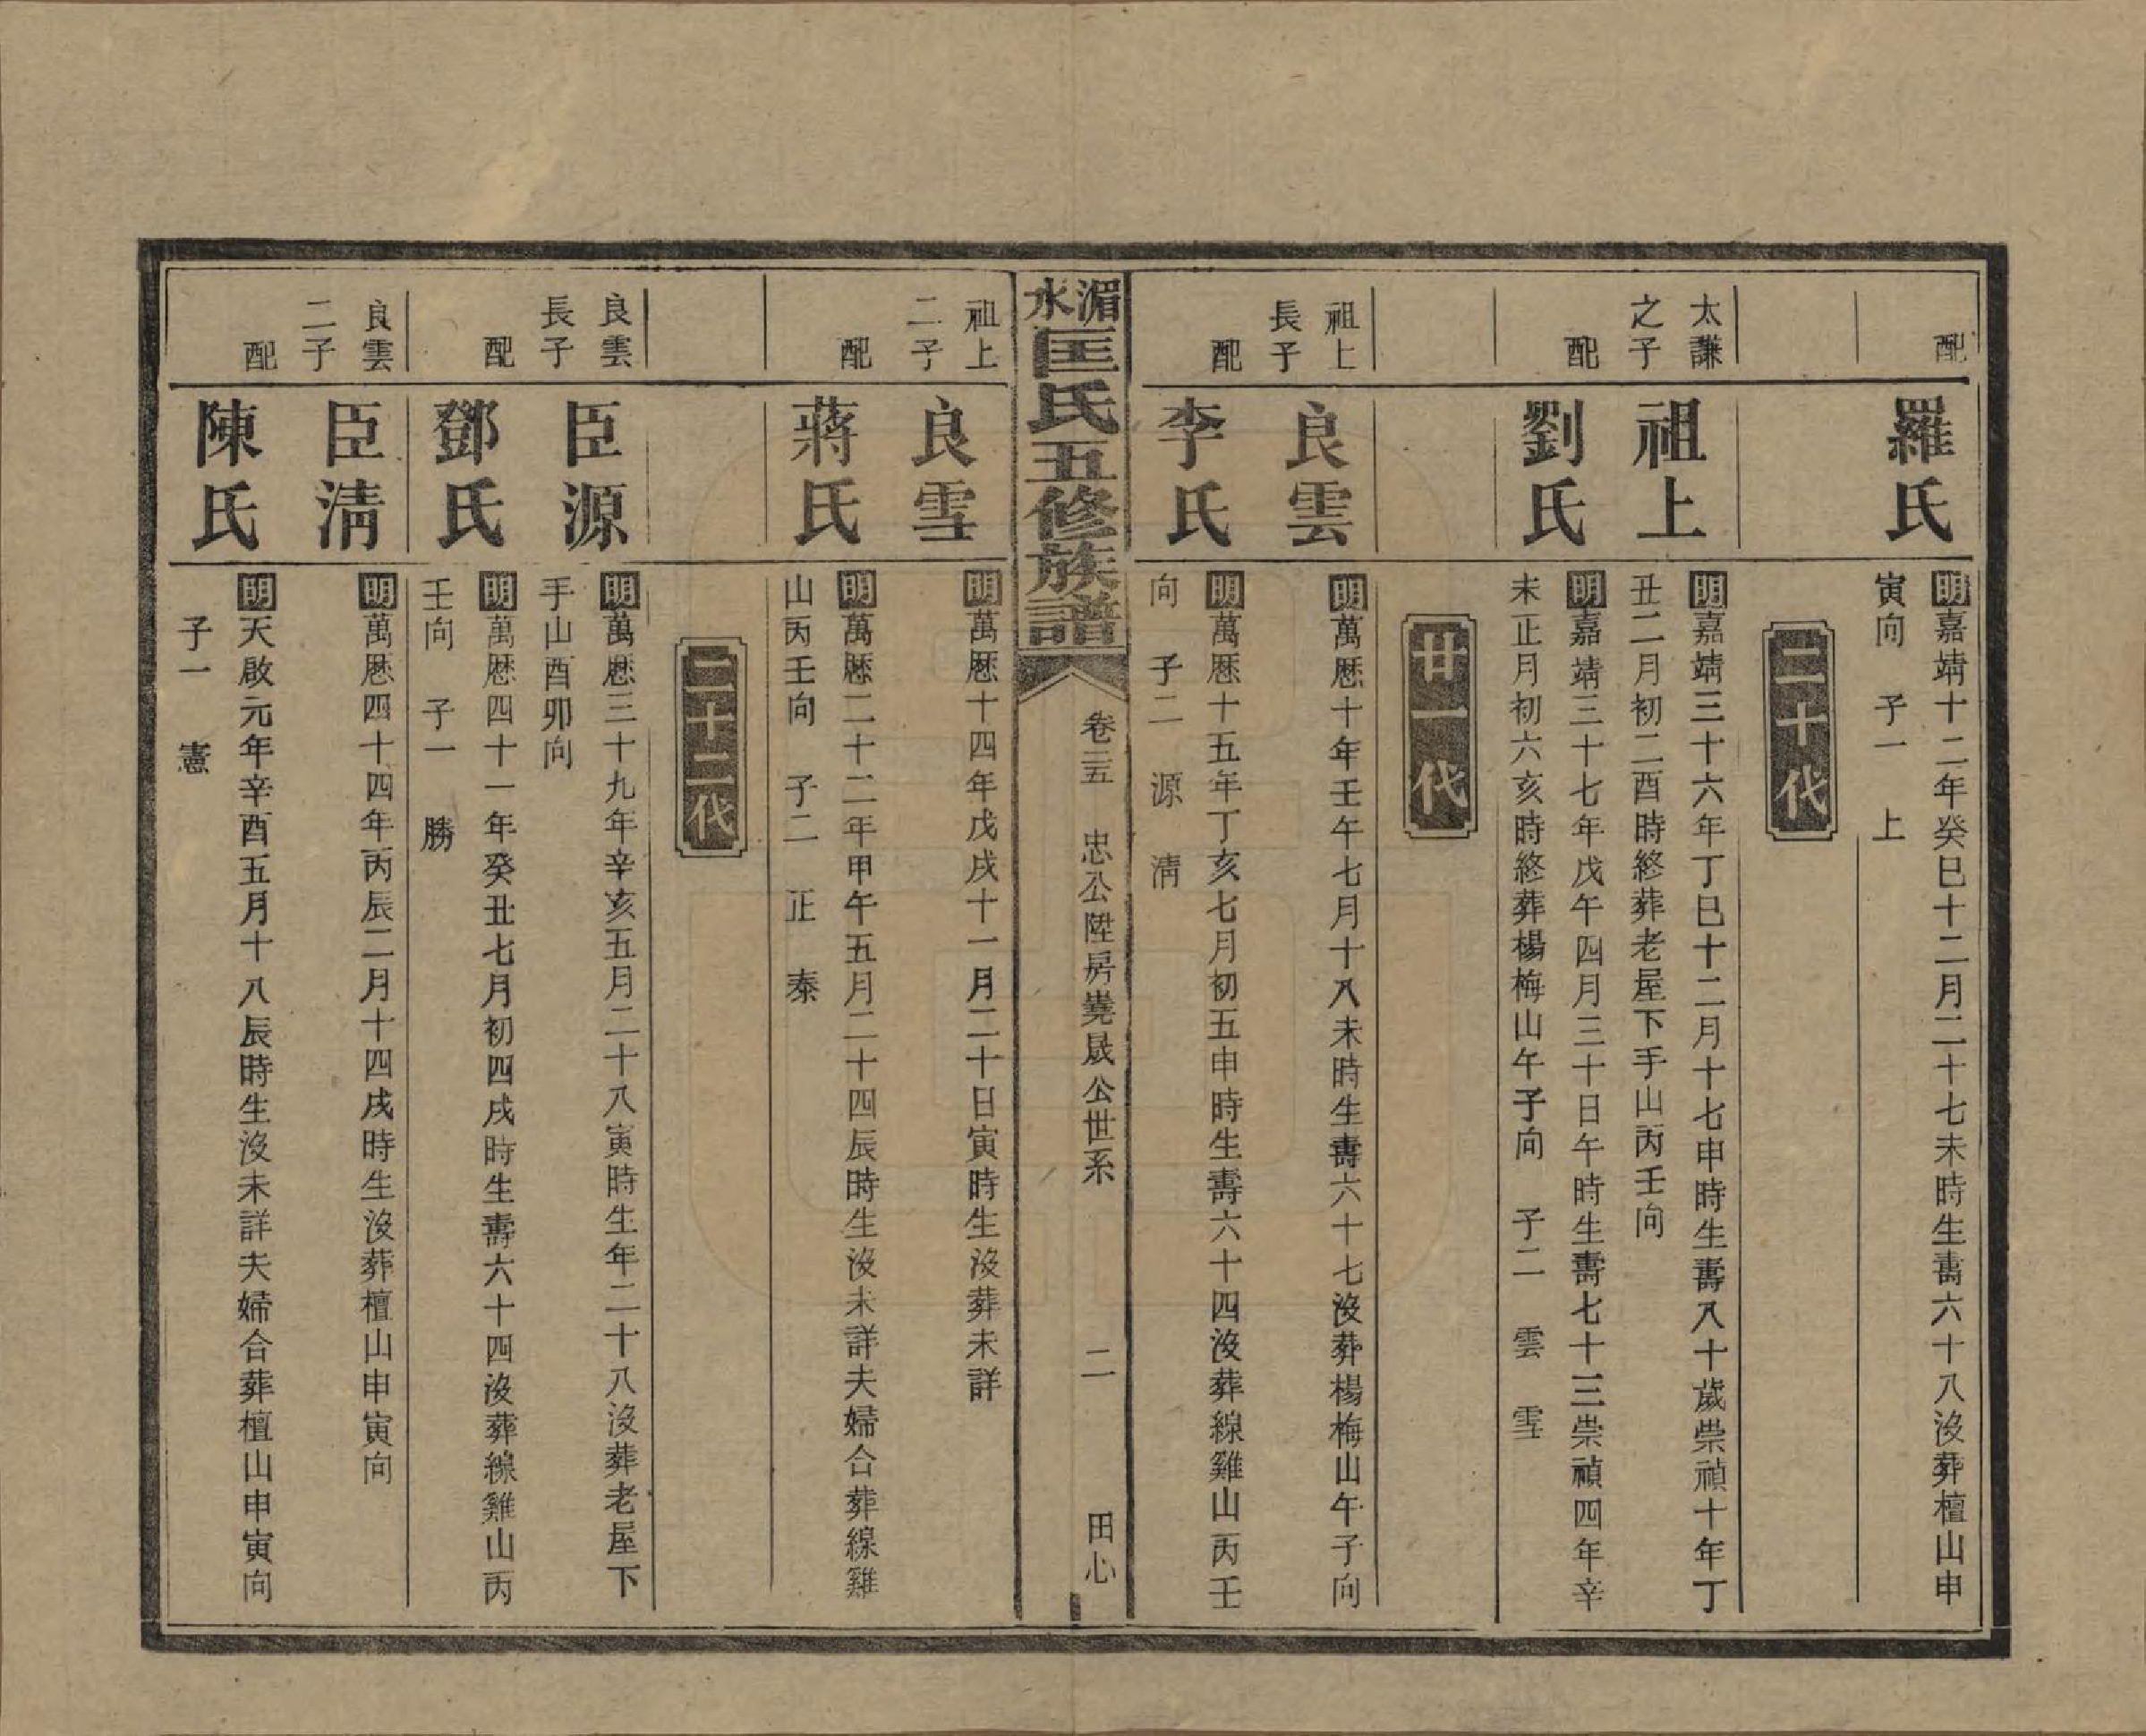 配
羅氏
明嘉靖十二年癸巳十二月二十七未時生壽六十八沒葬檀山申
寅向　子一　上
二十代
太謙
之子
祖上
明嘉靖三十六年丁巳十二月十七申時生壽八十歲崇禎十年丁
丑二月初二酉時終葬老屋下手山丙壬向
配
劉氏
明嘉靖三十七年戊午四月三十日午時生壽七十三崇禎四年辛
未正月初六亥時終葬楊梅山午子向　子二　雲　雪
廿一代
祖上
長子
良雲
明萬歷十年壬午七月十八未時生壽六十七沒葬楊梅山午子向
配
李氏
明萬歷十五年丁亥七月初五申時生壽六十四沒葬線雞山丙壬
向　子二　源　清
湄水匡氏五修族譜
卷三五　忠公陞房堯晟公世系　二　田心
祖上
二子
良雪
明萬歷十四年戊戌十一月二十日寅時生沒葬未詳
配
蔣氏
明萬歷二十二年甲午五月二十四辰時生沒未詳夫婦合葬線雞
山丙壬向　子二　正　泰
二十二代
良雲
長子
臣源
明萬歷三十九年辛亥五月二十八寅時生年二十八沒葬老屋下
手山酉卯向
配
鄧氏
明萬歷四十一年癸丑七月初四戌時生壽六十四沒葬線雞山丙
壬向　子一　勝
良雲
二子
臣清
明萬歷四十四年丙辰二月十四戌時生沒葬檀山申寅向
配
陳氏
明天啟元年辛酉五月十八辰時生沒未詳夫婦合葬檀山申寅向
子一　憲